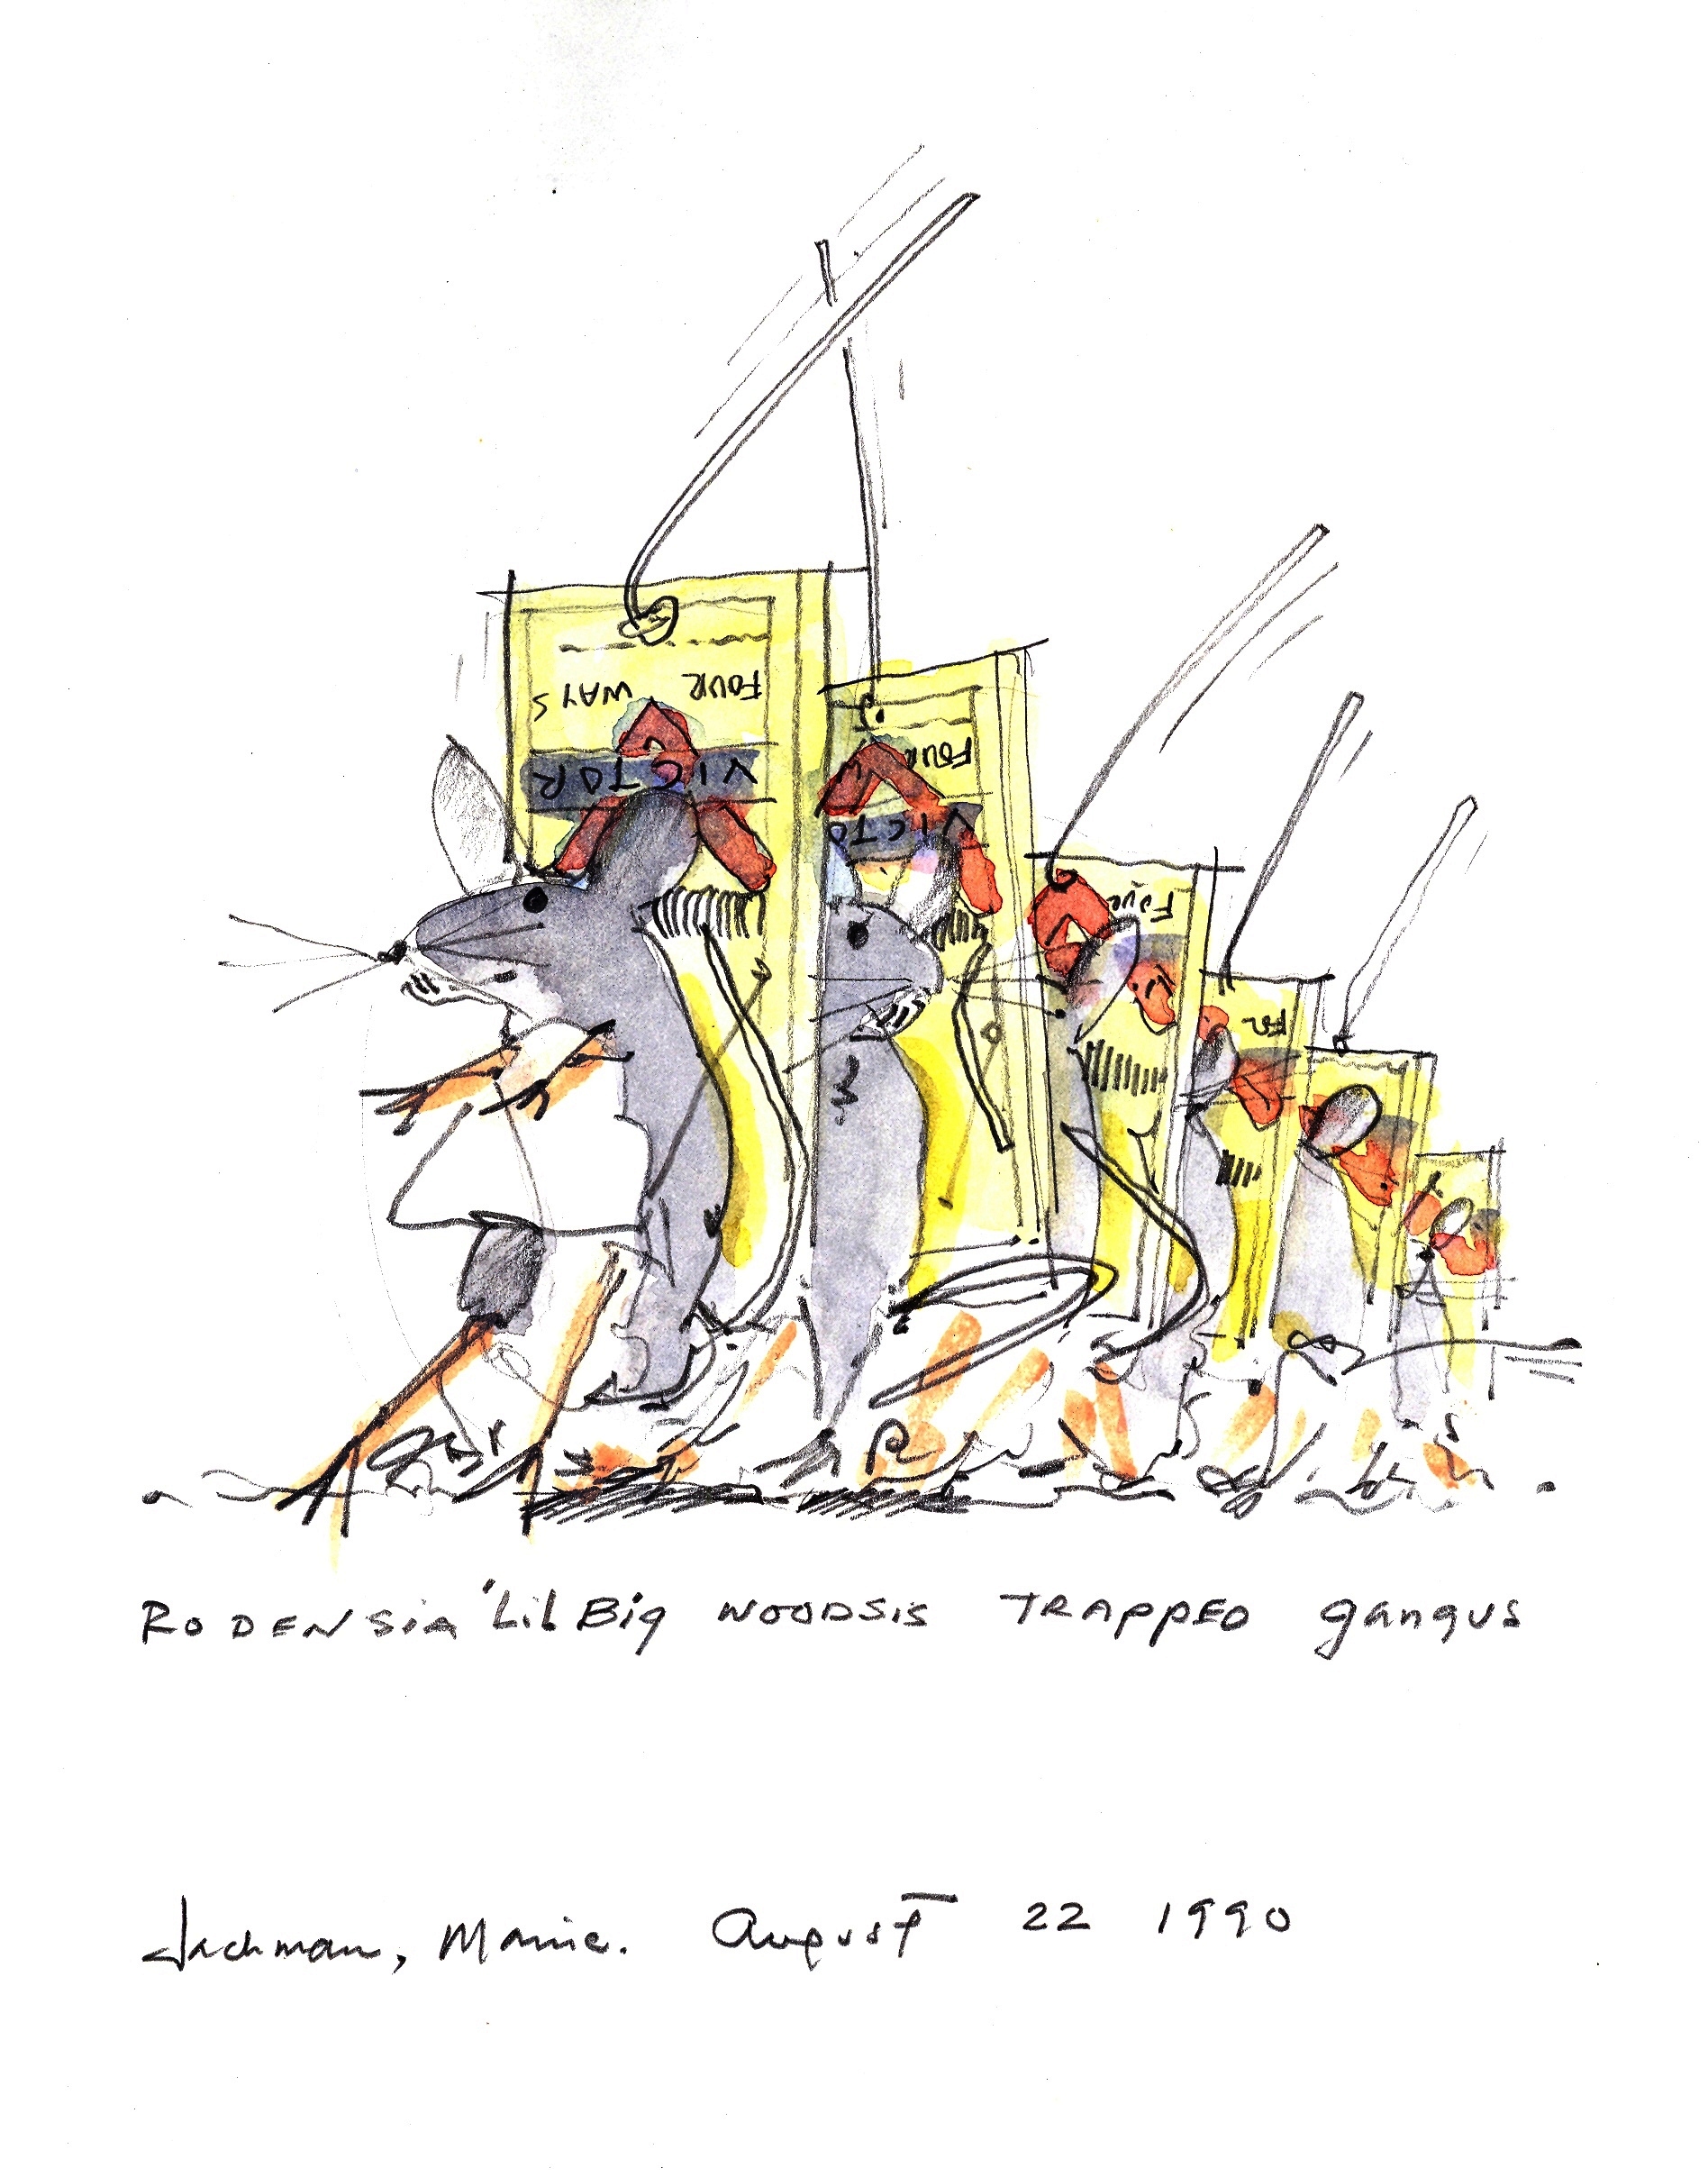 FOUR WAYS
VICTOR
FOUR W
VICTO
Four
Fo
RODENSIA 'Lil Big WOODSIS TRAPPED gangus
Jackman, Maine. August 22 1990